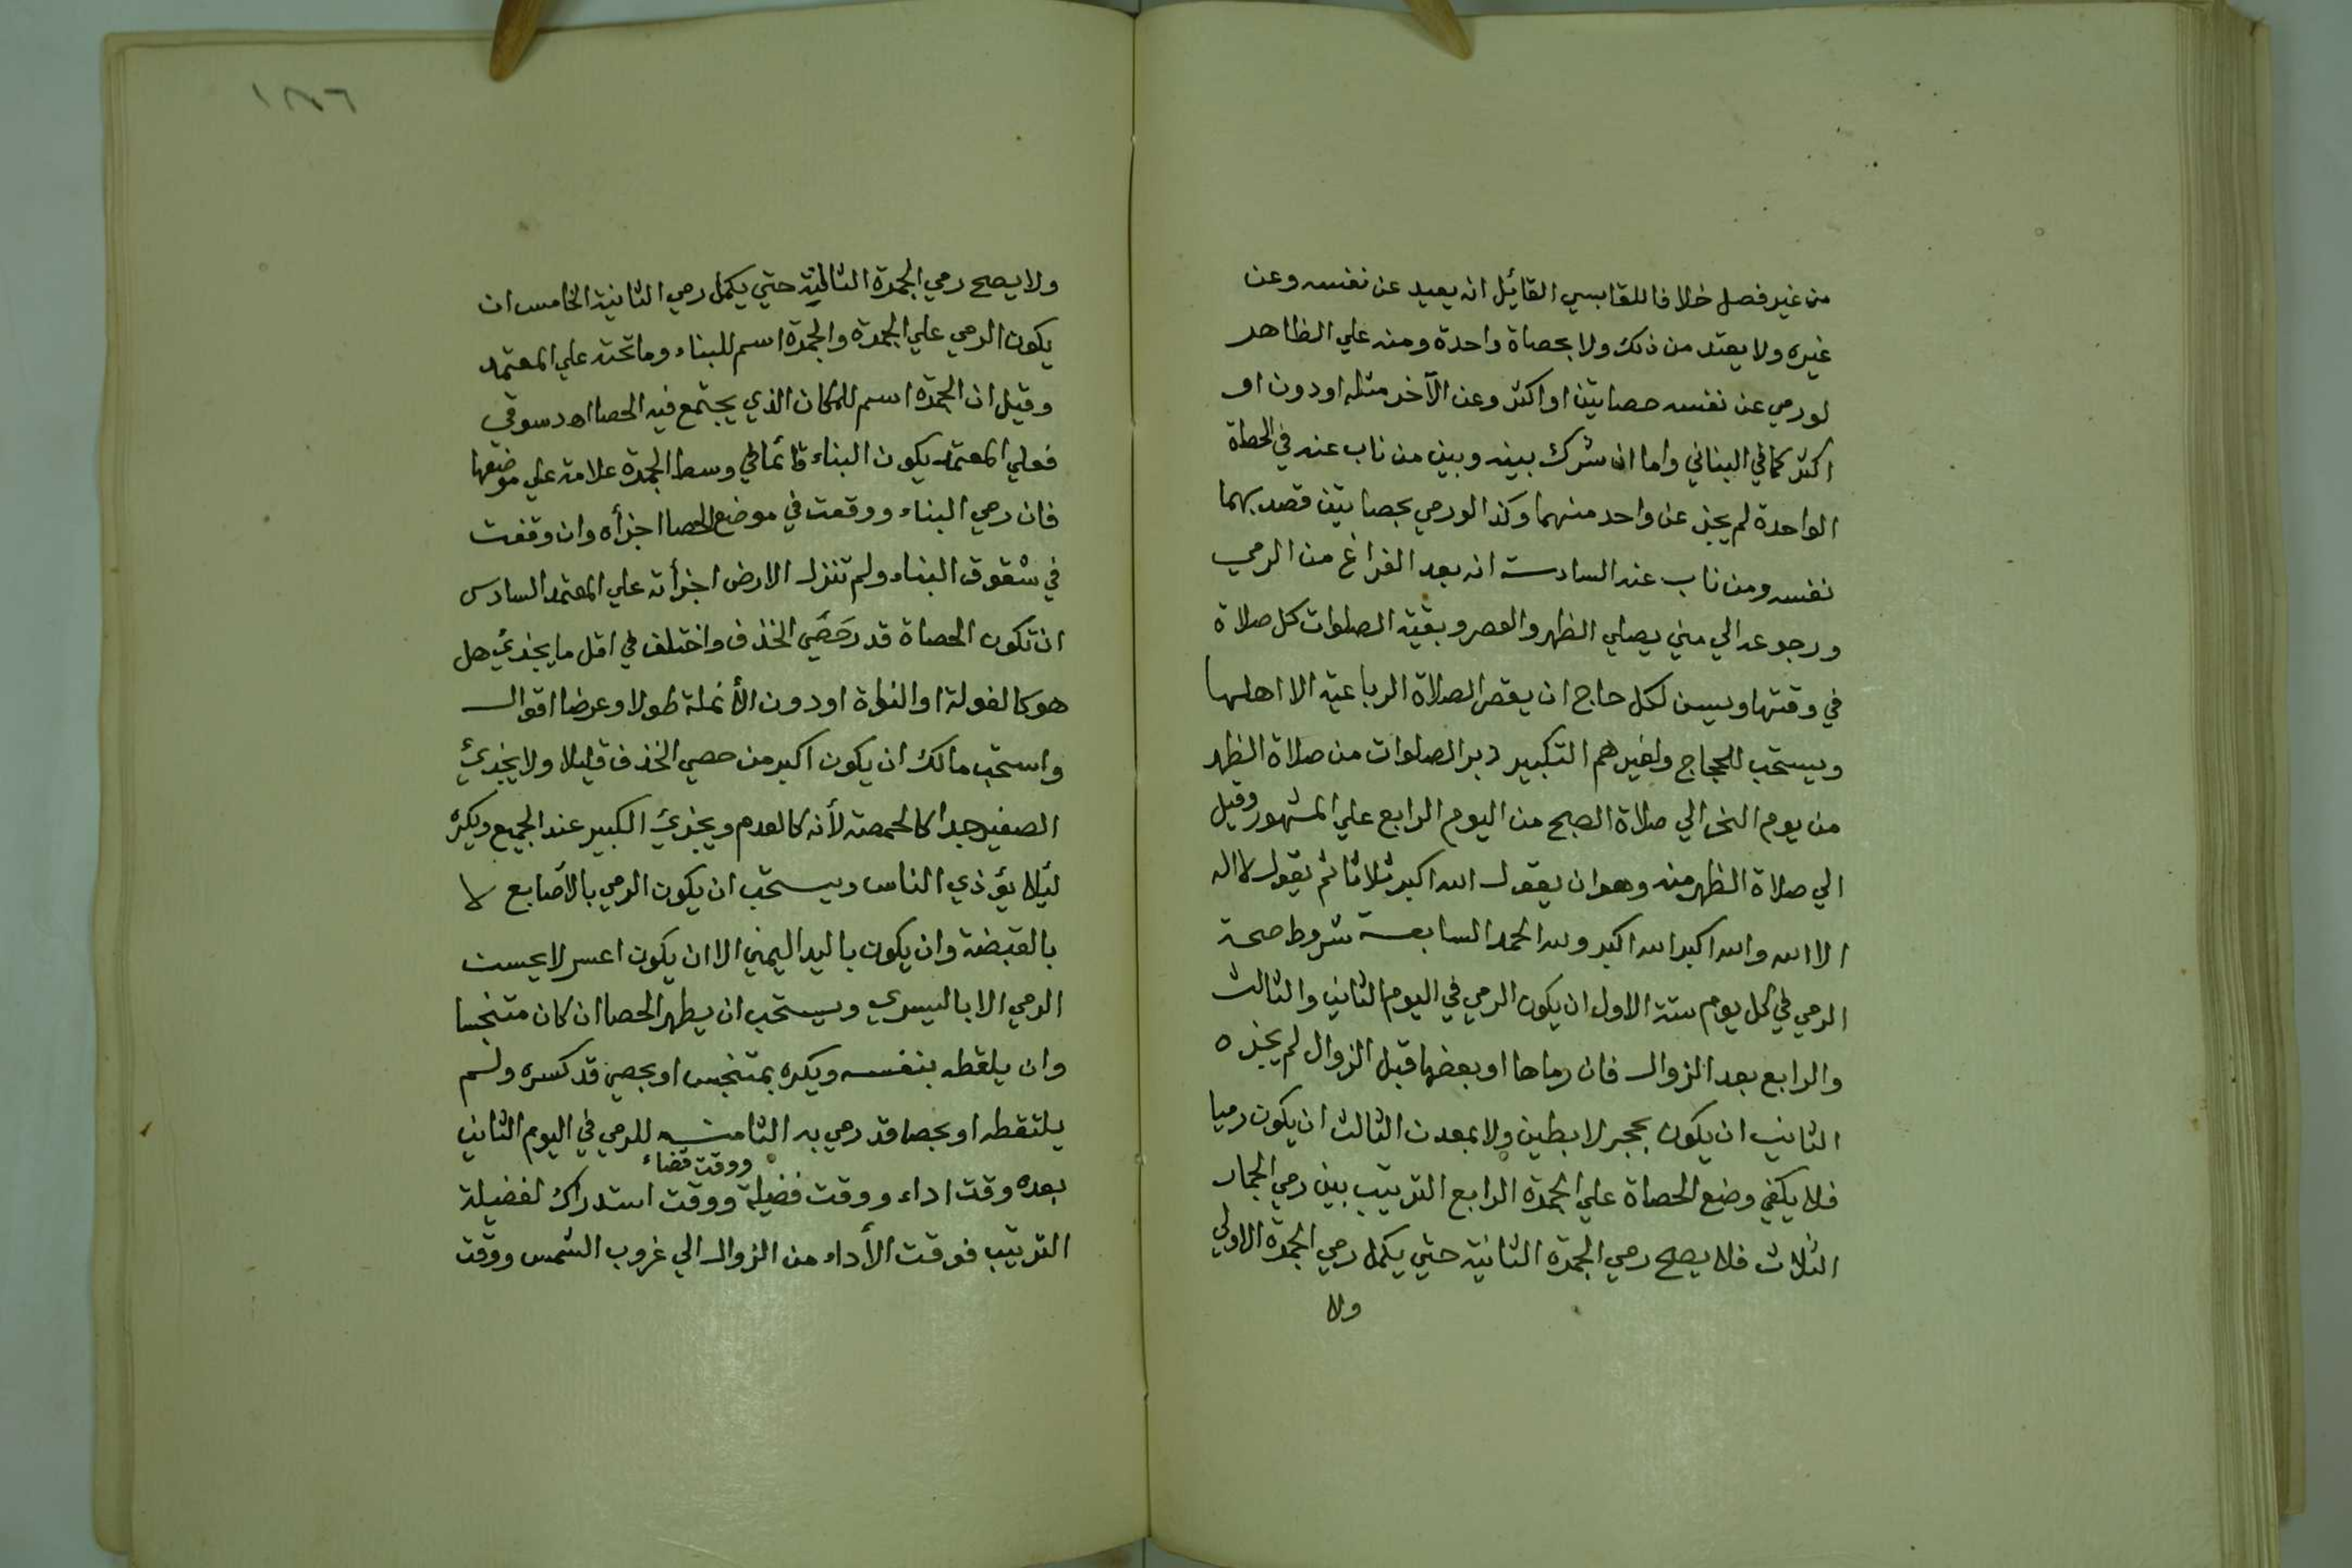 من غير فصل خلافا للقابسي القائل انه يعيد عن نفسه وعن
غيره ولا يعتد من ذلك ولا بحصاة واحدة ومنه علي الظاهر
لو رمي عن نفسه حصاتين او اكثر وعن الآخر مثله او دون او
اكثر كما في البناني واما ان شرك بينه وبين من ناب عنه في الحصاة
الواحدة لم يجز عن واحد منهما وكذا لو رمي بحصاتين قصد بهما
نفسه ومن ناب عنه السادسة انه بعد الفراغ من الرمي
ورجوعه الي مني يصلي الظهر والعصر وبقية الصلوات كل صلاة
في وقتها ويسن لكل حاج ان يقصر الصلاة الرباعية الا اهلها
ويستحب للحجاج ولغيرهم التكبير دبر الصلوات من صلاة الظهر
من يوم النحر الي صلاة الصبح من اليوم الرابع علي المشهور وقيل
الي صلاة الظهر منه وهو ان يقول الله اكبر ثلاثا ثم يقول لا اله
الا الله والله اكبر الله اكبر ولله الحمد السابعة شروط صحة
الرمي في كل يوم ستة الاول ان يكون الرمي في اليوم الثاني والثالث
والرابع بعد الزوال فان رماها او بعضها قبل الزوال لم يجزه
الثاني ان يكون بحجر لا بطين ولا بمعدن الثالث ان يكون رميا
فلا يكفي وضع الحصاة علي الجمرة الرابع الترتيب بين رمي الجمار
الثلاث فلا يصح رمي الجمرة الثانية حتي يكمل رمي الجمرة الاولي
ولا
ولا يصح رمي الجمرة الثالثة حتي يكمل رمي الثانية الخامس ان
يكون الرمي علي الجمرة والجمرة اسم للبناء وما تحته علي المعتمد
وقيل ان الجمرة اسم للمكان الذي يجتمع فيه الحصا اهـ دسوقي
فعلي المعتمد يكون البناء قائما في وسط الجمرة علامة علي موضعها
فان رمي البناء ووقعت في موضع الحصا اجزأه وان وقفت
في شقوق البناء ولم تنزل الارض اجزأته علي المعتمد السادس
ان تكون الحصاة قدر حَصَي الخذف واختلف في اقل ما يجزئ هل
هو كالفولة او النواة او دون الأنملة طولا وعرضا اقوال
واستحب مالك ان يكون اكبر من حصي الخذف قليلا ولا يجزئ
الصغير جدا كالحمصة لأنه كالعدم ويجزئ الكبير عند الجميع ويكره
لئلا يؤذي الناس ويستحب ان يكون الرمي بالأصابع لا
بالقبضة وان يكون باليد اليمني الا ان يكون اعسر لا يحسن
الرمي الا باليسري ويستحب ان يطهر الحصا ان كان متنجسا
وان يلقطه بنفسه ويكره بمتنجس او بحصي قد كسره ولم
يلتقطه او بحصا قد رمي به الثامنة للرمي في اليوم الثاني
ووقت قضاء
بعده وقت اداء ووقت فضيلة ووقت استدراك لفضيلة
الترتيب فوقت الأداء من الزوال الي غروب الشمس ووقت